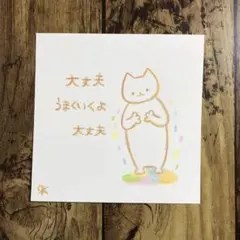 大丈夫
うまくいくよ
大丈夫